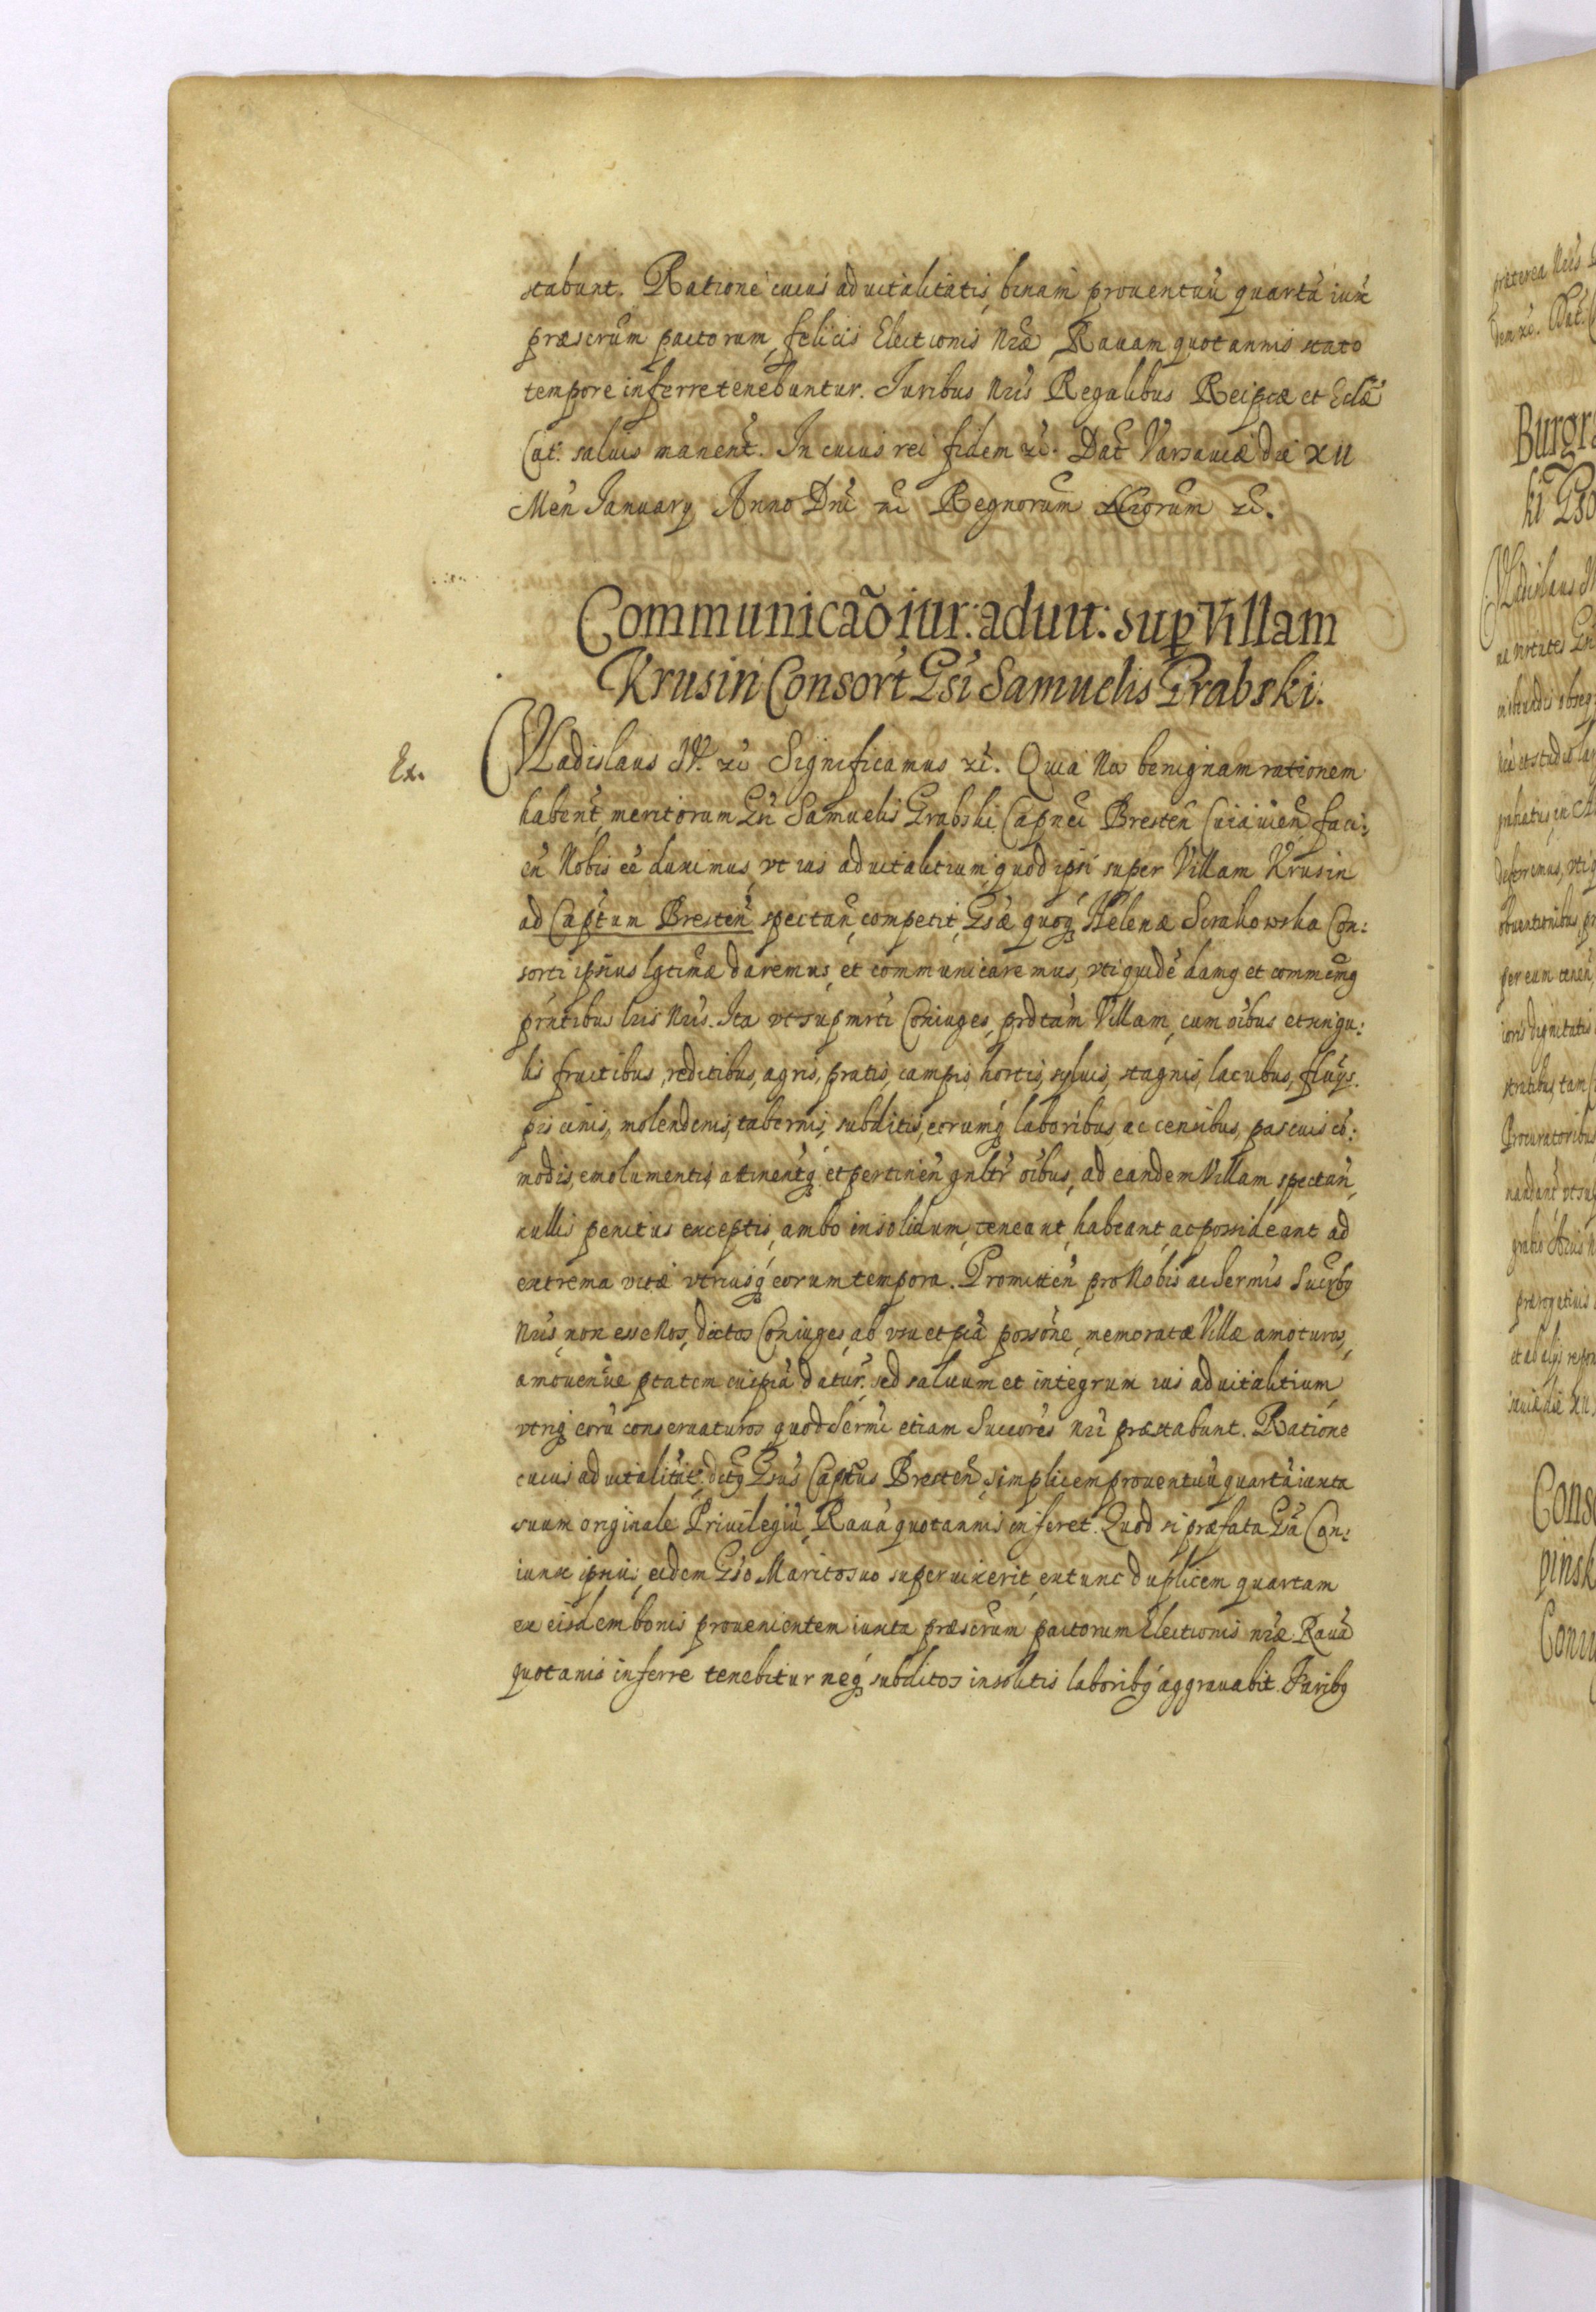 stabunt. Ratione cuius aduitalitatis, binam prouentuũ quartã iux
præscrũm pactorum, felicis Electionis Nræ, Rauam quotannis stato
tempore inferre tenebuntur. Iuribus Nris Regalibus Reipcæ et Ecclæ
Cat. saluis manent. In cuius rei fidem &c. Dat Varsauiæ die XII
Men Ianuary Anno Dni &c Regnorum Nrorum &c.
Communicaõ iur: aduit: sup Villam
Krusin Consort Gsi Samuelis Grabski.
Ex.
Vladislaus IV. &c Significamus &c. Quia Nos benignam rationem
habent, meritorum Gsi Samuelis Grabski Capnei Bresten Cuiauien faci:
en Nobis eê duximus, vt ius aduitalitium, quod ipsi super Villam Krusin
ad Captum Bresten spectan, competit, Gsæ quoq Helenæ Scrakowska Con:
sorti ipsius lgtimæ daremus, et communicaremus, vti quidẽ damq et commcmq
pñtibus lris Nris. Ita vt supmrti Coniuges, prdtam Villam, cum oibus et singu:
lis fructibus, reditibus, agris, pratis, campis, hortis, syluis, stagnis, lacubus, fluys.
piscinis, molendinis, tabernis, subditis, eorumq laboribus, ac censibus, pascuis cõ:
modis, emolumentis, attinentq et pertinen gnltr oibus, ad eandem Villam spectan,
nullis penitus exceptis, ambo insolidum, teneant, habeant, ac possideant ad
extrema vitæ vtriusq eorum tempora. Promitten pro Nobis ac Sermis Succrbq
Nris, non esse Nos, dictos Coniuges, ab vsu et pcã possone, memoratæ Villæ amoturos,
amouendiue ptatem cuipiã datur. sed saluum et integrum ius aduitalitium
vtriq eorũ conseruaturos quod Sermi etiam Succores Nri præstabunt. Ratione
cuius aduitalitit. dctq Gsus Captus Bresten, simplicem prouentuũ quartã iuxta
suum originale Priuilegiũ, Rauã quotannis inferet. Quod si præfata Gsa Con:
iunx ipsius, eidem Gso Marito suo superuixerit, extunc duplicem quartam
ex eisdem bonis prouenientem iuxta præscrũm pactorum Electionis nræ Rauã
quotanis inferre tenebitur neq subditos insolitis laboribq aggrauabit. Iuribq